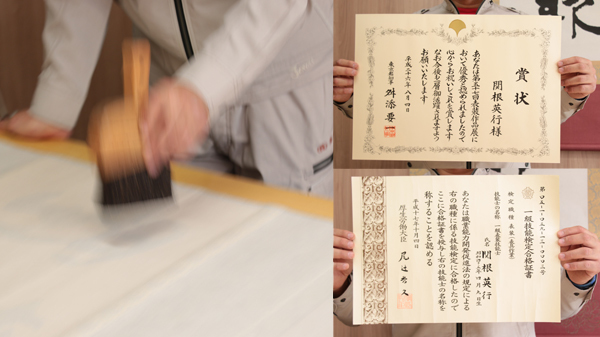 賞状
関根英行様
あなたは第五十一回表装作品展に
おいて優秀と認められましたので
心からお祝いしこれを賞します
なお今後も一層御活躍されますよう
お願いいたします
平成二十六年八月四日
東京都知事
舛添要一
一級技能検定合格証書
検定職種 表装(表具作業)
技能士の名称 一級表装技能士
氏名 関根英行
あなたは職業能力開発促進法の規定による
右の職種に係る技能検定に合格したので
ここに合格証書を授与し右の技能士の名称を
称することを認める
平成十七年十月四日
厚生労働大臣
尾辻秀久